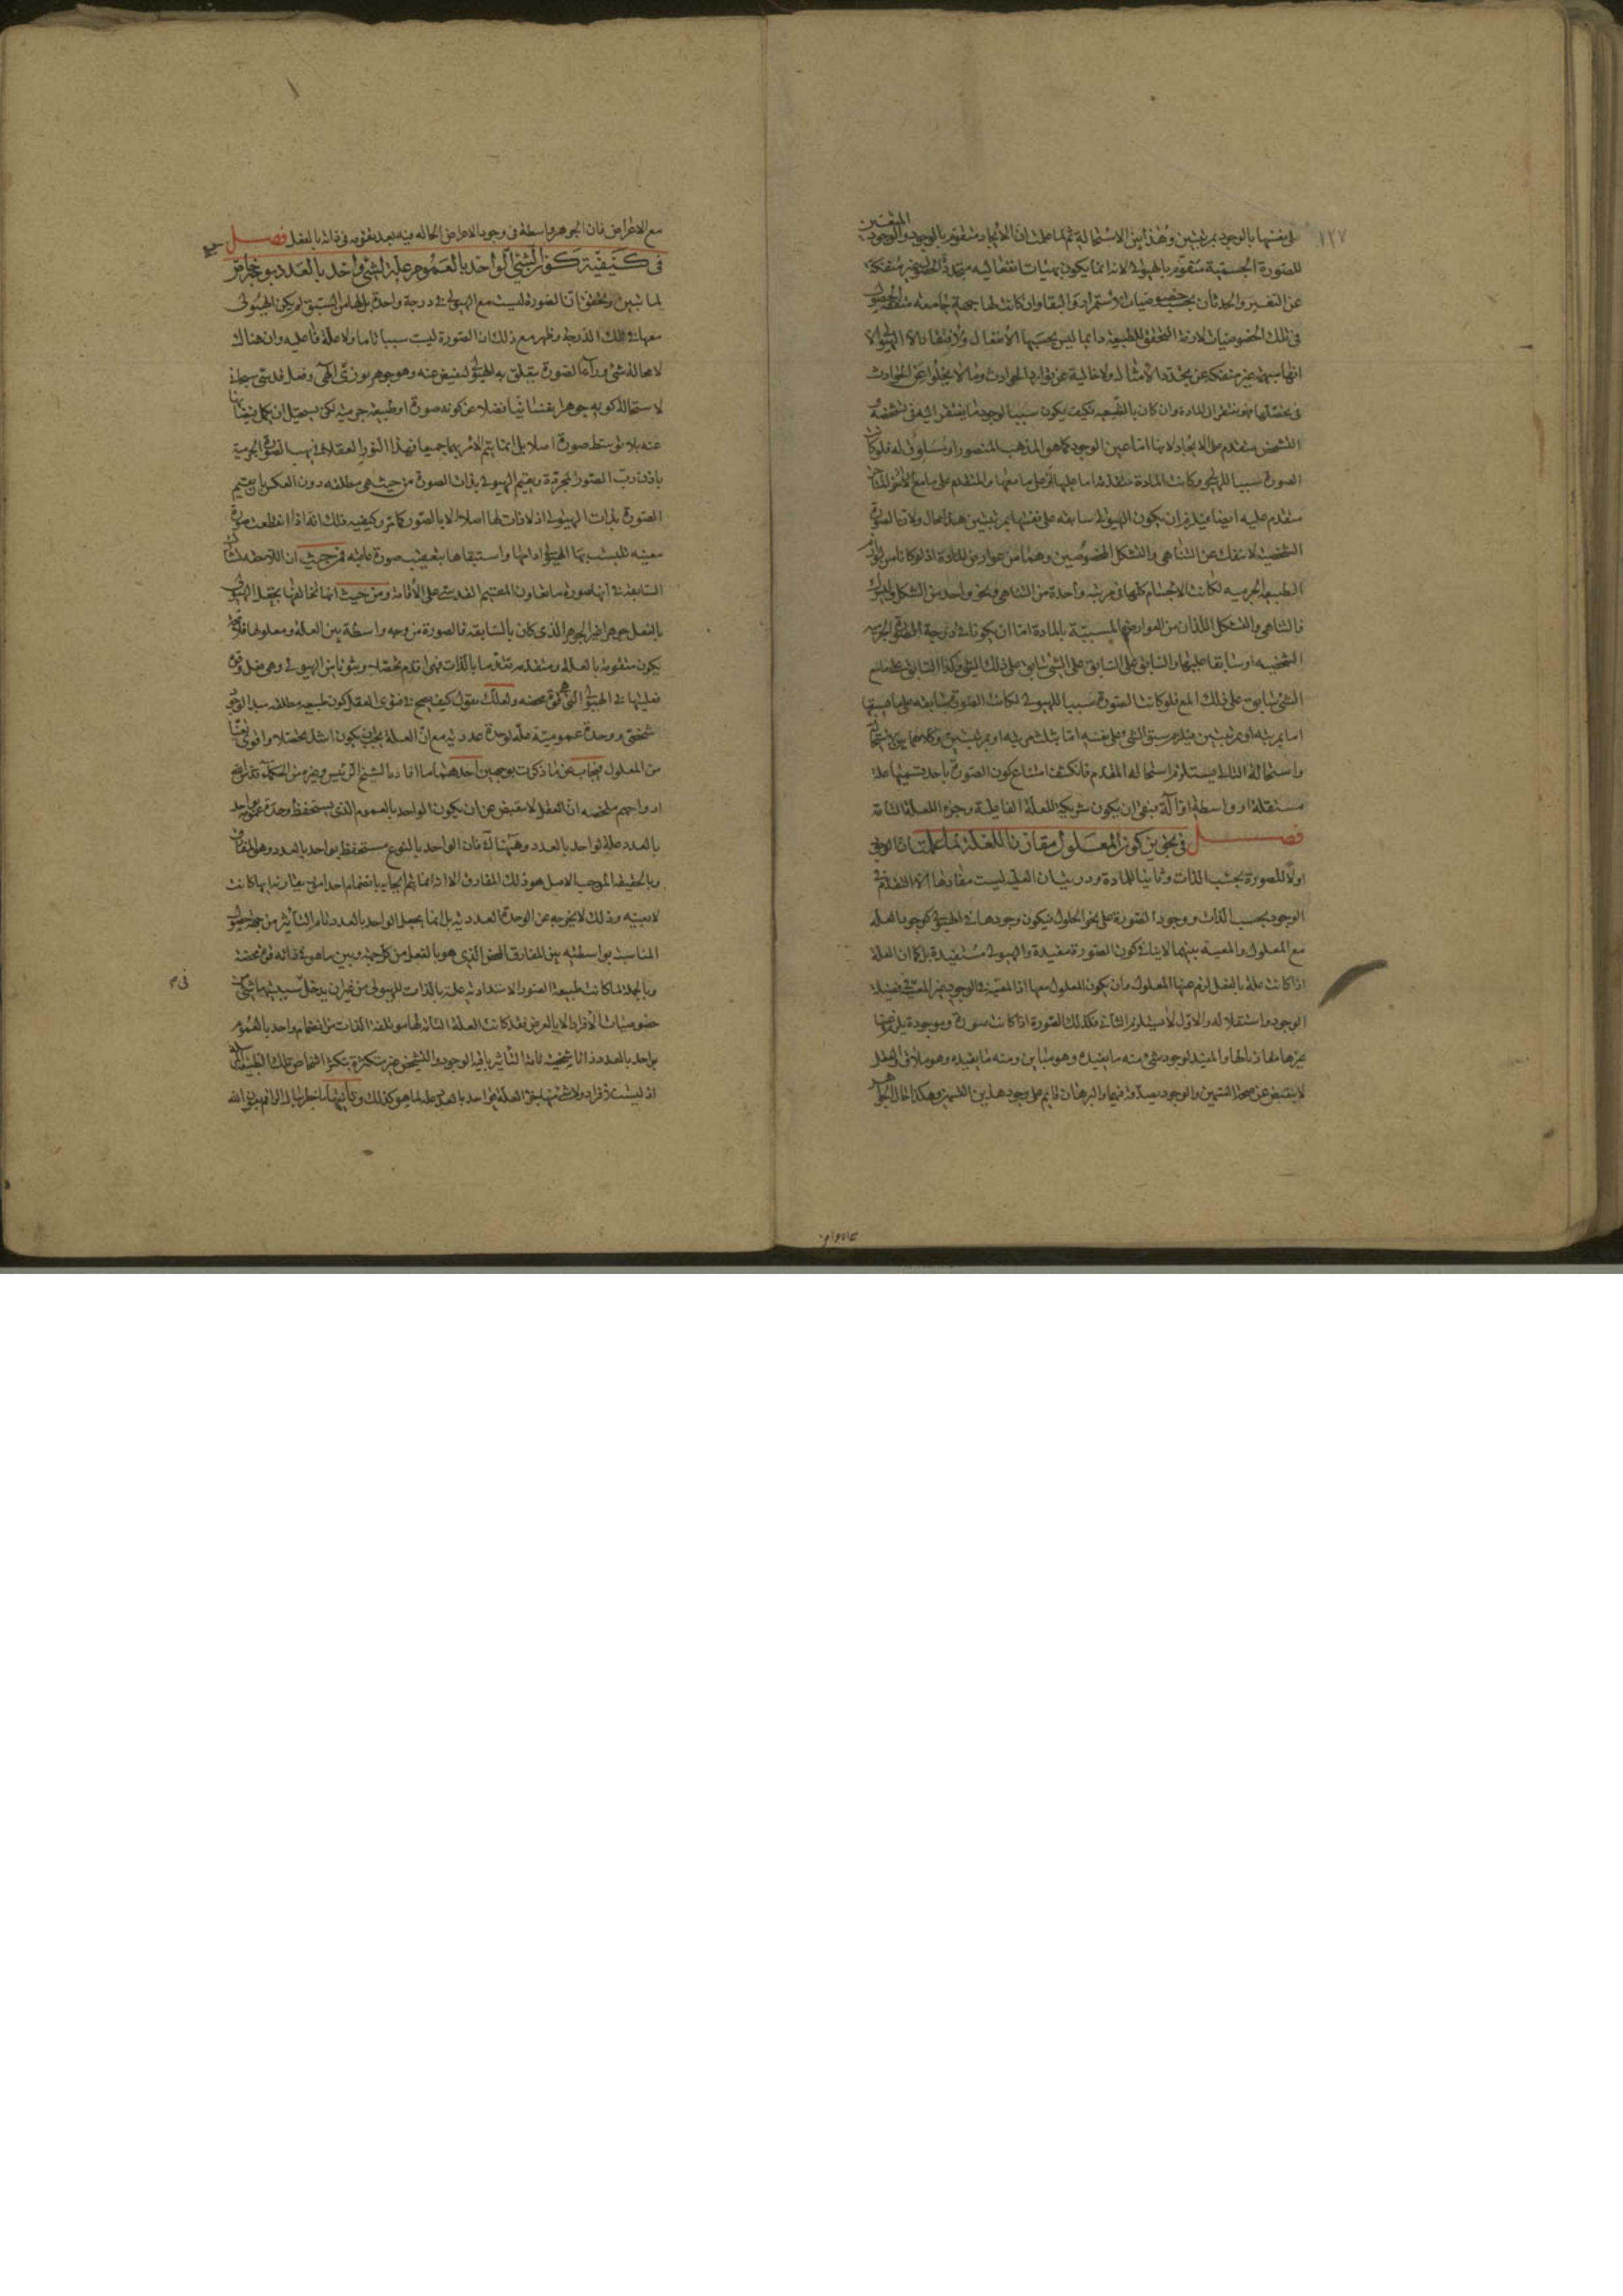 ١٢٧
على نفسها بالوجود بمرتبتين وهذا بين الاستحالة ثم لما علمت ان الايجاد متقوم بالوجود والوجود
للصورة الجسمية متقوم بالهيولى لانه انما يكون بهيئات انفعاليه متجددة الحصول غير منفكة
عن التغير والحدثان بحسب خصوصيات الاستمرار والبقا وان كانت لها جهة جامعه
فى تلك الخصوصيات لازمة التحقق للطبيعة دايما ليس بحسبها الانفعال ولا افتقار الا الهيولى الا
انها مبهمة غير منفكة عن تجدد الامثال ولا خالية عن توارد الحوادث وما لا يخلوا عن الحوادث
فى تحصلها فهو يفتقر الى المادة وان كان بالتبعيه فكيف يكون سببا لوجود ما يفتقر اليه فى تشخصه
التشخص متقدم على الايجاد لانها اما عين الوجود كما هو المذهب المنصور او مساوق له فلو كان
الصورة سببا للهيولى وكانت المادة متقدمة اما عليها او على ما معها والمتقدم على ما مع الامر
متقدم عليه ايضا فيلزم ان يكون الهيولى سابقه على نفسها بمرتبتين هذا محال ولان الصورة
الشخصية لا تنفك عن التناهى والتشكل المخصوصين وهما من عوارض المادة اذ لو كانا من لوازم
الطبيعة الجرميه لكانت الاجسام كلها فى مرتبة واحدة من التناهى ونحو واحد من الشكل
فالتناهى والتشكل اللذان من العوارض المسببة بالمادة اما ان يكونا فى درجة الصورة الجرميه
الشخصيه او سابقا عليها والسابق على السابق على الشئ سابق على ذلك الشئ وكذا السابق على ما مع
الشئ سابق على ذلك المع فلو كانت الصورة سببا للهيولى لكانت الصورة سابقه على ما يسبقها
اما بمرتبه او بمرتبتين فيلزم سبق الشئ على نفسه اما بثلث مرتبه او بمرتبتين وكلاهما بين الاستحالة
واستحالة التالى يستلزم استحالة المقدم فانكشف امتناع كون الصورة باحد قسميها علة
مستقلة او واسطة او آلة فبقى ان يكون شريكة للعلة الفاعلية وجزء اللعلة التامة
فصل فى تجويز كون المعلول مقارنا للعلة لما علمت ان الوجود
اولا للصورة بحسب الذات وثانيا للمادة ودريت ان العلة ليست مفادها الا التقدم فى
الوجود بحسب الذات ووجود الصورة على نحو الحلول فيكون وجودها فى الهيولى كوجود العلة
مع المعلول والمعية بينهما لا ينافى كون الصورة مفيدة والهيولى مستفيدة بل كما ان العلة
اذا كانت علة بالفعل لزم عنها المعلول وان يكون المعلول معها اذ المعية فى الوجود غير المعية فى فضيلة
الوجود واستقلاله والاول لا يستلزم الثانى فكذلك الصورة اذا كانت صورة وموجودة يلزم عنها
غيرها مقارنا لها والمفيد لوجود شئ منه ما يفيده وهو مباين ومنه ما يفيده وهو ملاق والعقل
لا ينقبض عن صحة القسمين والوجود يصدقه فيهما والبرهان قايم على وجود هذين القسمين وهكذا حال الجواهر
مع الاعراض فان الجوهر واسطة فى وجود الاعراض الحالة فيه بعد تقومه فى ذاته بالفعل فصل
فى كيفية كون الشئ الواحد بالعموم علة لشئ واحد بالعدد
لما تبين وتحقق ان الصورة ليست مع الهيولى فى درجة واحدة بل لها من السبق لم يكن للهيولى
معها فى تلك الدرجة وظهر مع ذلك ان الصورة ليست سببا تاما ولا علة فاعليه وان هناك
لا محالة شئ وراء الصورة يتعلق به الهيولى ليفيض عنه وهو جوهر نورى الهى وفعل قدسى سبحانى
لاستحالة كونه جوهرا نفسانيا فضلا عن كونه صورة او طبيعة جرميه لكن يستحيل ان يكمل فيضانها
عنه بلا توسط صورة اصلا بل انما يتم الامر بهما جميعا فهذا النور العقلانى يهب الصورة الجرمية
باذن رب الصور المجردة ويقيم الهيولى بذات الصورة من حيث هى مطلقه دون العكس بان يقيم
الصورة بذات الهيولى اذ لا ذات لها اصلا الا بالصور كما مر وكيفيه ذلك انه اذا انقطعت صورة
معينه تلبست بها الهيولى ادامها واستبقاها بتعقيب صورة عاقبه فمن حيث ان اللاحقة
السابقة فى انها صورة ما تعاون المقيم القدسى على الاقامة ومن حيث انها تخالفها يجعل الهيولى
بالفعل جوهرا غير الجوهر الذى كان بالسابقه فالصورة من وجه واسطة بين العلة ومعلولها
يكون متقومة بالعلة ومتقدمه تقدما بالذات فهى اقدم تحصلا وثبوتا من الهيولى وهى فعل وقوة
فعليتها فى الهيولى التى هى قوة محضه ولعلك تقول كيف يصح فى فتوى العقل كون طبيعة مطلقه مبدء لوجود
شخصى ووحدة عمومية علة لوحدة عددية مع ان العلة يجب ان يكون اشد تحصلا واقوى تعينا
من المعلول فيجاب عن ما ذكرت بوجهين احدهما ما افاده الشيخ الرئيس وغيره من الحكماء
ارواحهم ملخصه ان العقل لا ينقبض عن ان يكون الواحد بالعموم الذى يستحفظ وحدة عمومه واحد
بالعدد علة لواحد بالعدد وههنا كذلك فان الواحد بالنوع مستحفظ بواحد بالعدد وهو المفارق
وبالحقيقة الموجب الاصل هو ذلك المفارق الا انه انما يتم ايجابه بانضمام احد امور يقارنه ايها كانت
لا بعينه وذلك لا يخرجه عن الوحدة العددية بل انما يجعل الواحد بالعدد تام التأثير من جهة حصول
المناسبة بواسطته بين المفارق المحض الذى هو بالفعل من كل جهة وبين ما هو فى ذاته قوة محضة
وبالجملة لما كانت طبيعة الصور الامتدادية علة بالذات للهيولى من غير ان يدخل فى سببيتها شئ من
خصوصيات الافراد الا بالعرض فقد كانت العلة التامة لها مؤتلفة الذات من انضمام واحد بالعموم
بواحد بالعدد ذاتا شخصية تامة التأثير باقية الوجود والتشخص غير متكثرة بتكثر اشخاص تلك الطبيعة
اذ ليست الافراد ولا شئ منها جزء العلة فواحد بالعدد علة لما هو كذلك وثانيهما ما خطر ببال الراقم بعون الله